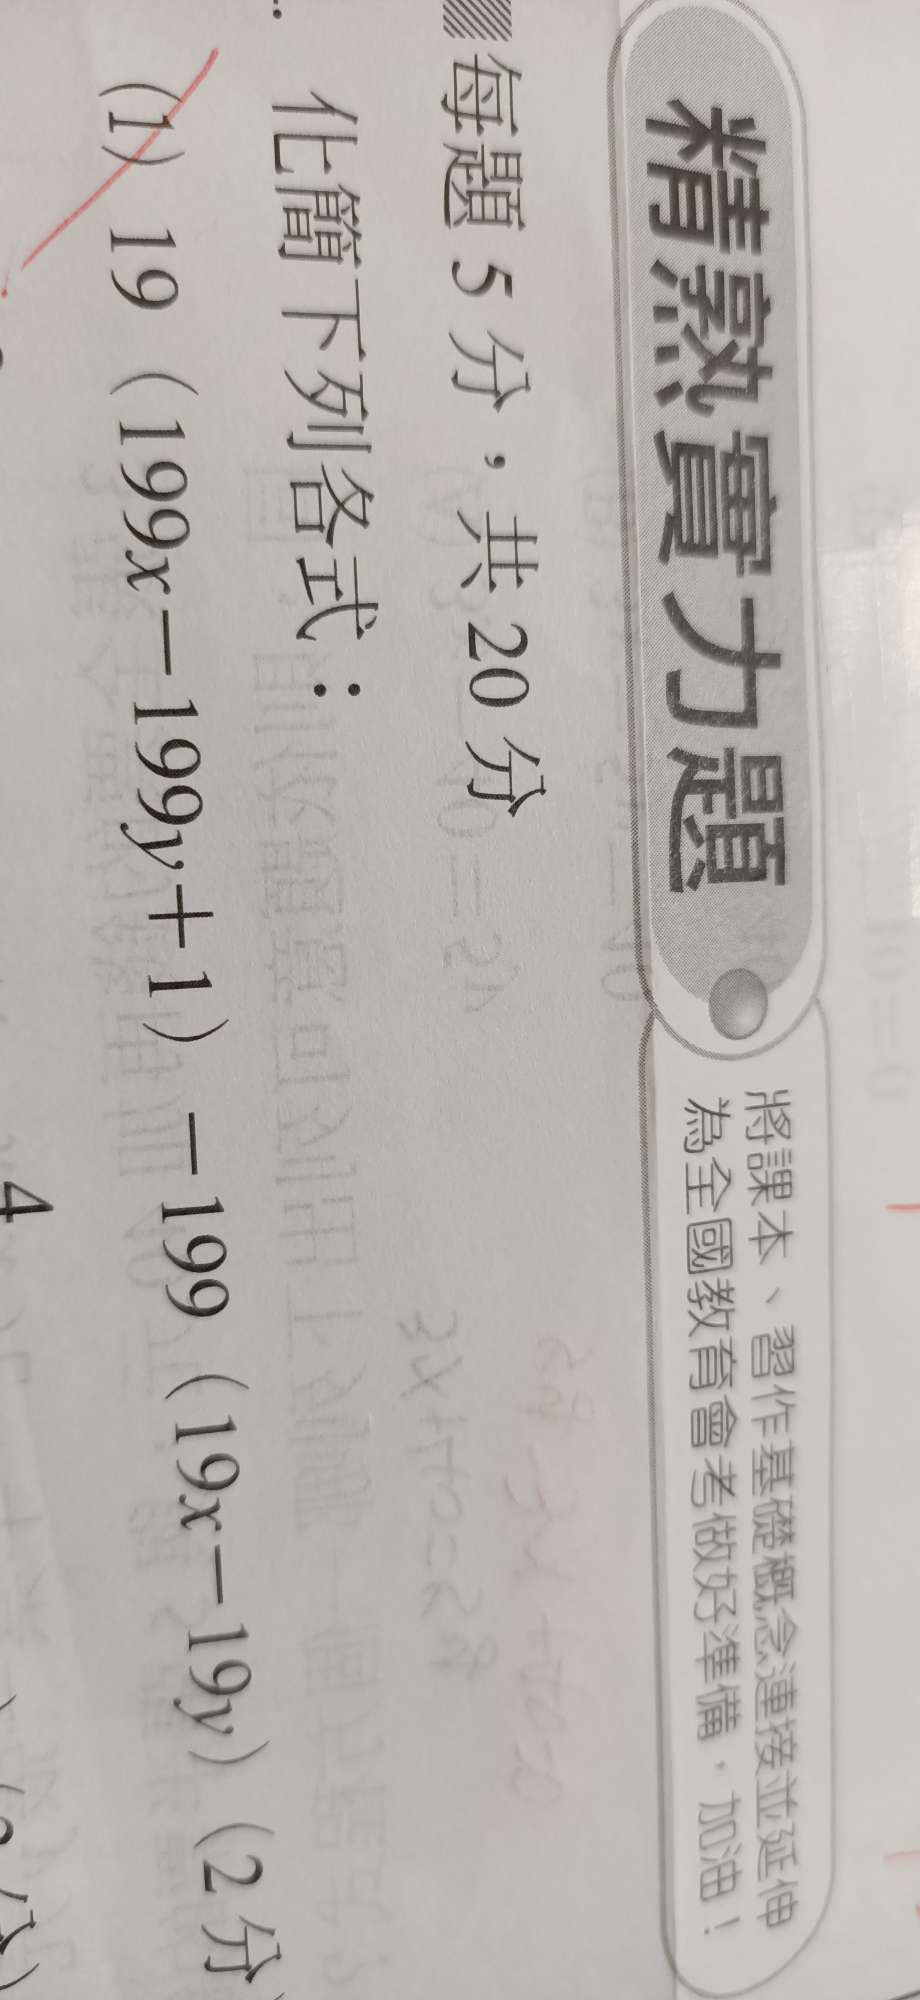 精熟實力題
將課本、習作基礎概念連接並延伸
為全國教育會考做好準備，加油！
每題 5 分，共 20 分
化簡下列各式：
(1) 19（199x－199y＋1）－199（19x－19y）（2 分）
4
分）